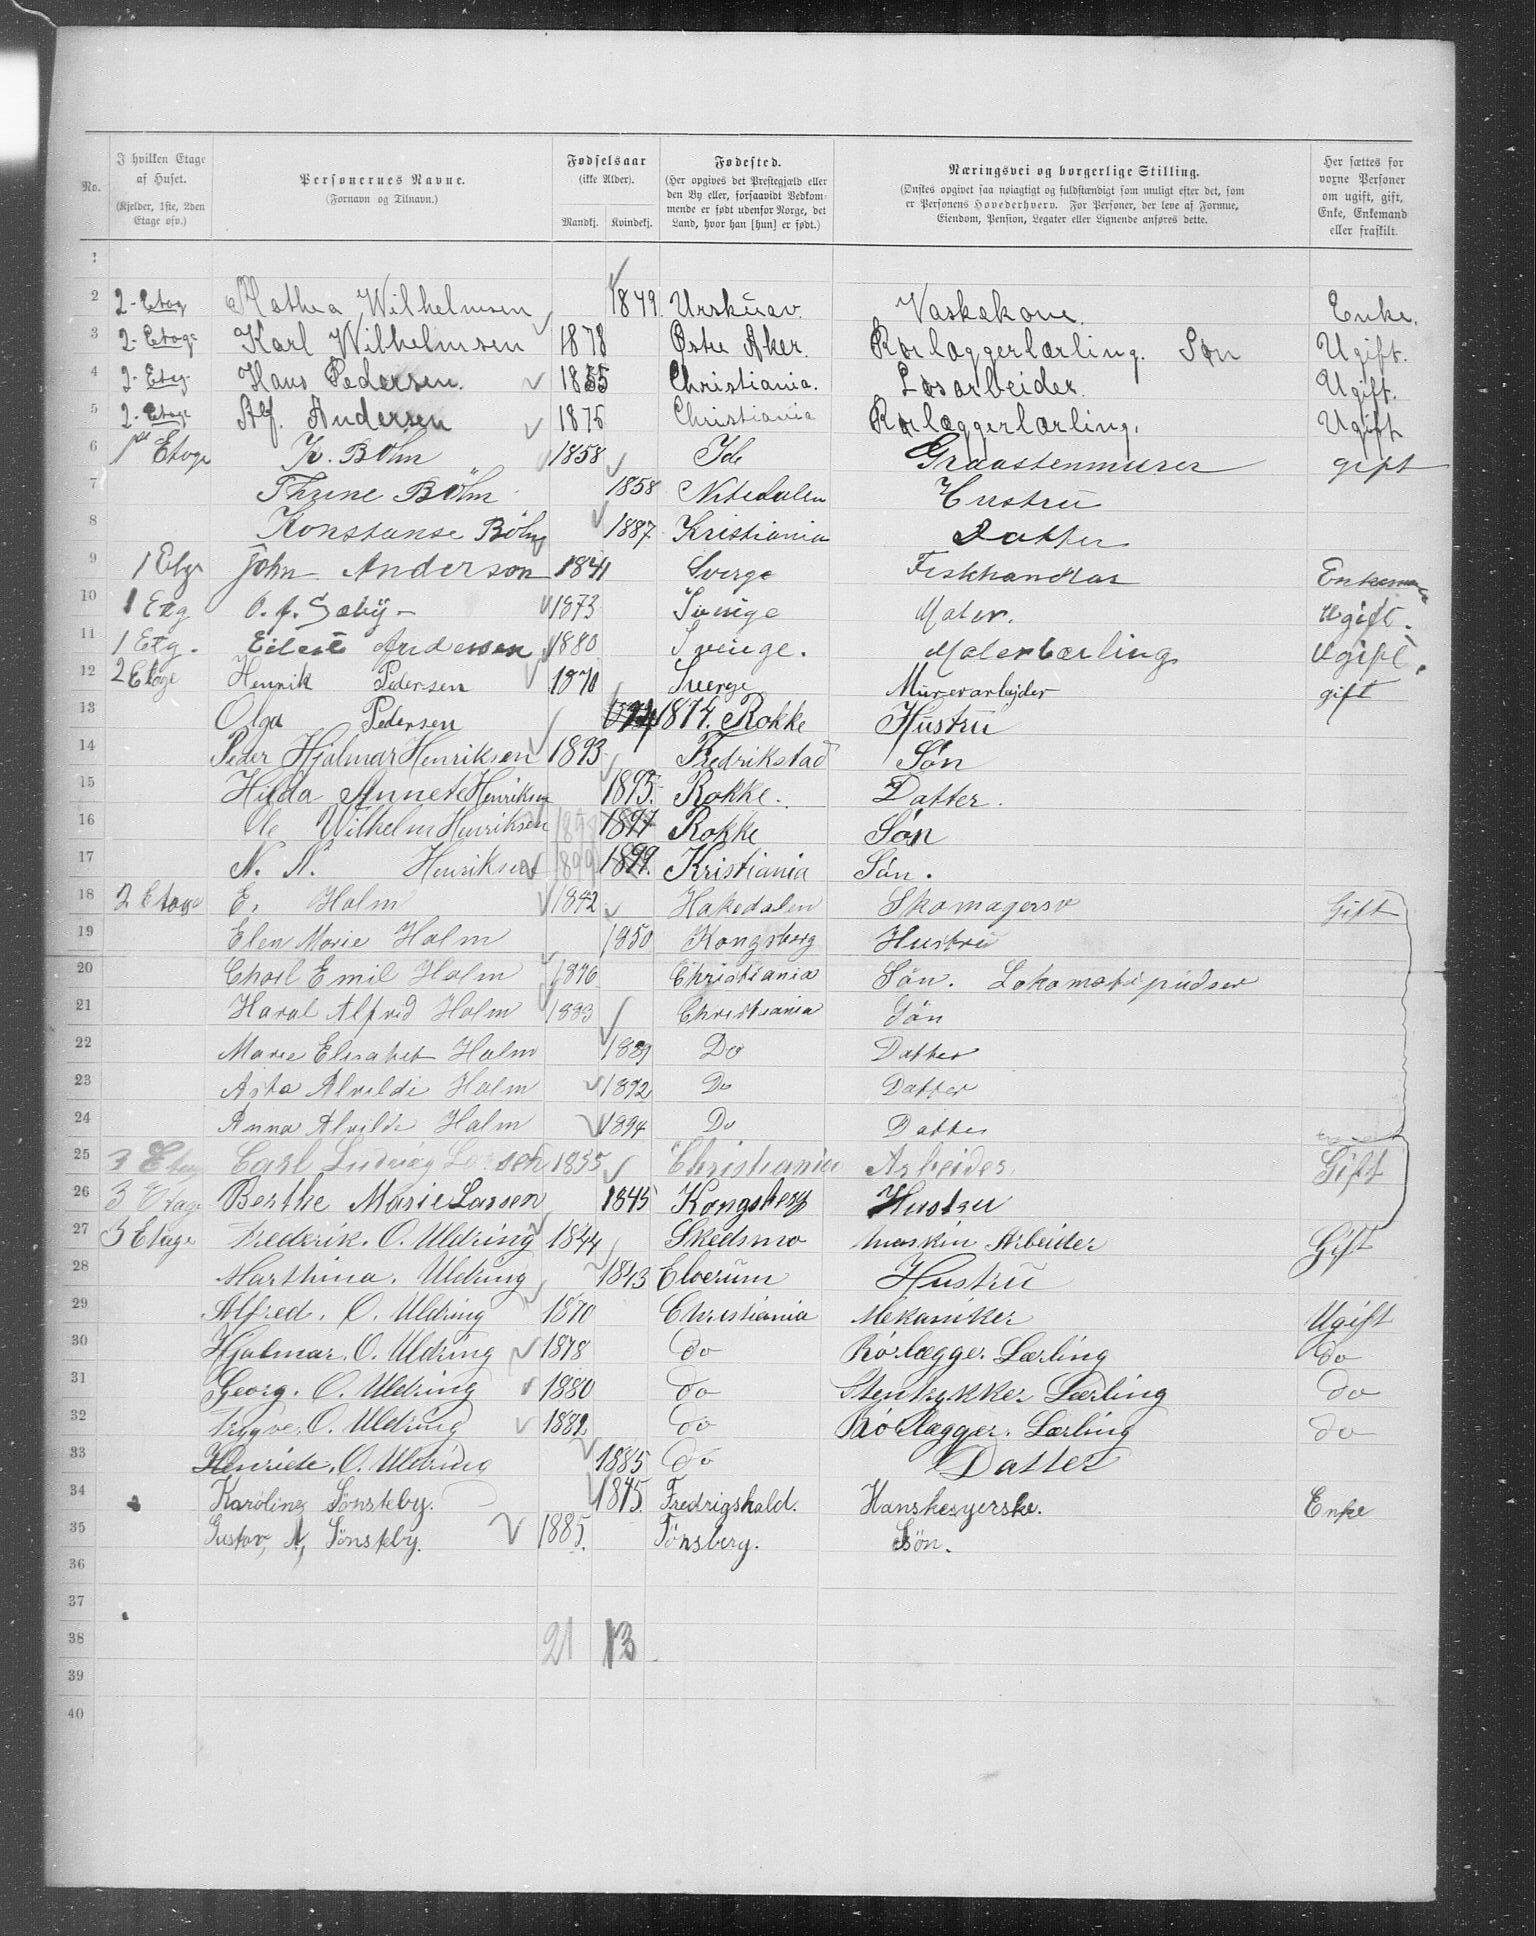 No.
I hvilken Etage af Huset. (Kjelder, 1ste, 2den Etage osv.)
Personernes Navne. (Fornavn og Tilnavn.)
Fødselsaar (ikke Alder). Mandkj. Kvindekj.
Fødested. (Her opgives det Prestegjæld eller den By eller, forsaavidt Vedkommende er født udenfor Norge, det Land, hvor han [hun] er født.)
Næringsvei og borgerlige Stilling. (Ønskes opgivet saa nøiagtigt og fuldstændigt som muligt efter det, som er Personens Hovederhverv. For Personer, der leve af Formue, Eiendom, Pension, Legater eller Lignende anføres dette.)
Her sættes for voxne Personer om ugift, gift, Enke, Enkemand eller fraskilt.
1
2 2. Etag Mathea Wilhelmsen 1849. Urskuav Vaskekone. Enke.
3 2. Etage Karl Wilhelmsen 1878 Østre Aker. Rørlæggerlærling. Søn Ugift.
4 2. Etag Hans Pedersen. 1855 Christiania. Løsarbeider. Ugift.
5 2. Etage Alf. Andersen 1875 Christiania Rørlæggerlærling. Ugift
6 1ste Etage K. Bøhm 1858 Ide Graastenmurer gift
7 Thrine Bøhm 1858 Nitedalen Hustru
8 Konstanse Bøhm 1887 Kristiania Datter
9 1 Etge John Anderson 1841 Sverge Feskhandlar Enkeman
10 1 Etg O. f. Sæby 1873 Sverige Maler. Ugift.
11 1 Etg. Andersen 1880 Sverige. Malerlærling Ugift.
12 2 Etage Henrik Pedersen 1870 Sverge Murerarbejder gift
13 Olga Pedersen 1874. Rokke Hustru
14 Peder Hjalmar Henriksen 1893 Fredrikstad Søn
15 Hilda Annete Henriksen 1895. Rokke. Datter.
16 Ole Wilhelm Henriksen 1897 1897 Rokke Søn
17 N. N. Henriksen 1899 1899. Kristiania Søn.
18 2 Etage E. Holm 1842 Hakedalen Skomagersv Gift
19 Elen Marie Holm 1850 Kongsberg Hustru
20 Charl Emil Holm 1876 Christiania Søn. Lokomotivpudser
21 Haral Alfred Holm 1883 Christiania Søn
22 Marie Elisabet Holm 1889 Do Datter
23 Asta Alvilde Holm 1892 Do Datter
24 Anna Alvilde Holm 1894 Do Datter
25 3 Etag Carl Ludvig Larsen 1855 Christiania Arbeider. Gift
26 3 Etage Berthe Marie Larsen 1845 Kongsberg Hustru
27 3 Etage Frederik. O. Uldring 1844 Skedsmo Maskin Arbeider Gift
28 Marthina. Uldring 1843 Elverum Hustru
29 Alfred. O. Uldring 1870 Christiania Mekaniker Ugift
30 Hjalmar. O. Uldring 1878 do Rørlægger. Lærling do
31 Georg. O. Uldring 1880 do Stentrykker Lærling do
32 Trygve. O. Uldring 1882 do Rørlægger. Lærling do
33 Henriete. O. Uldring 1885 do Datter
34 Karoline Sönsteby. 1845. Fredrigshald. Hanskesyerske. Enke
35 Gustav, A, Sönsteby. 1885. Tönsberg. Sön.
36
37
38 21 13
39
40